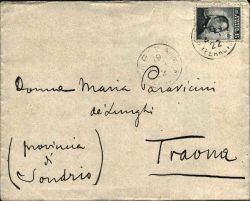 Donna Maria Paravicini
de' Lunghi
(provincia
di
Sondrio)
Traona
22